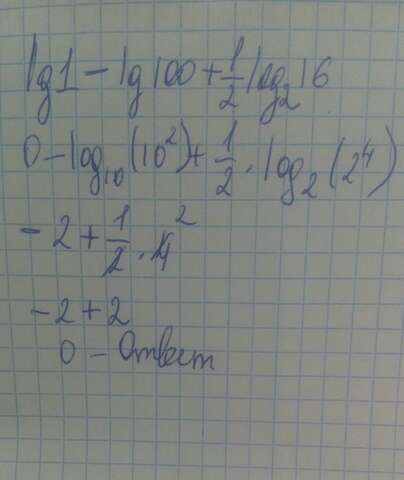 lg1 − lg100 + 1/2 log₂16
0 − log₁₀(10²) + 1/2 · log₂(2⁴)
− 2 + 1/2 · 4 2
− 2 + 2
0 − Ответ